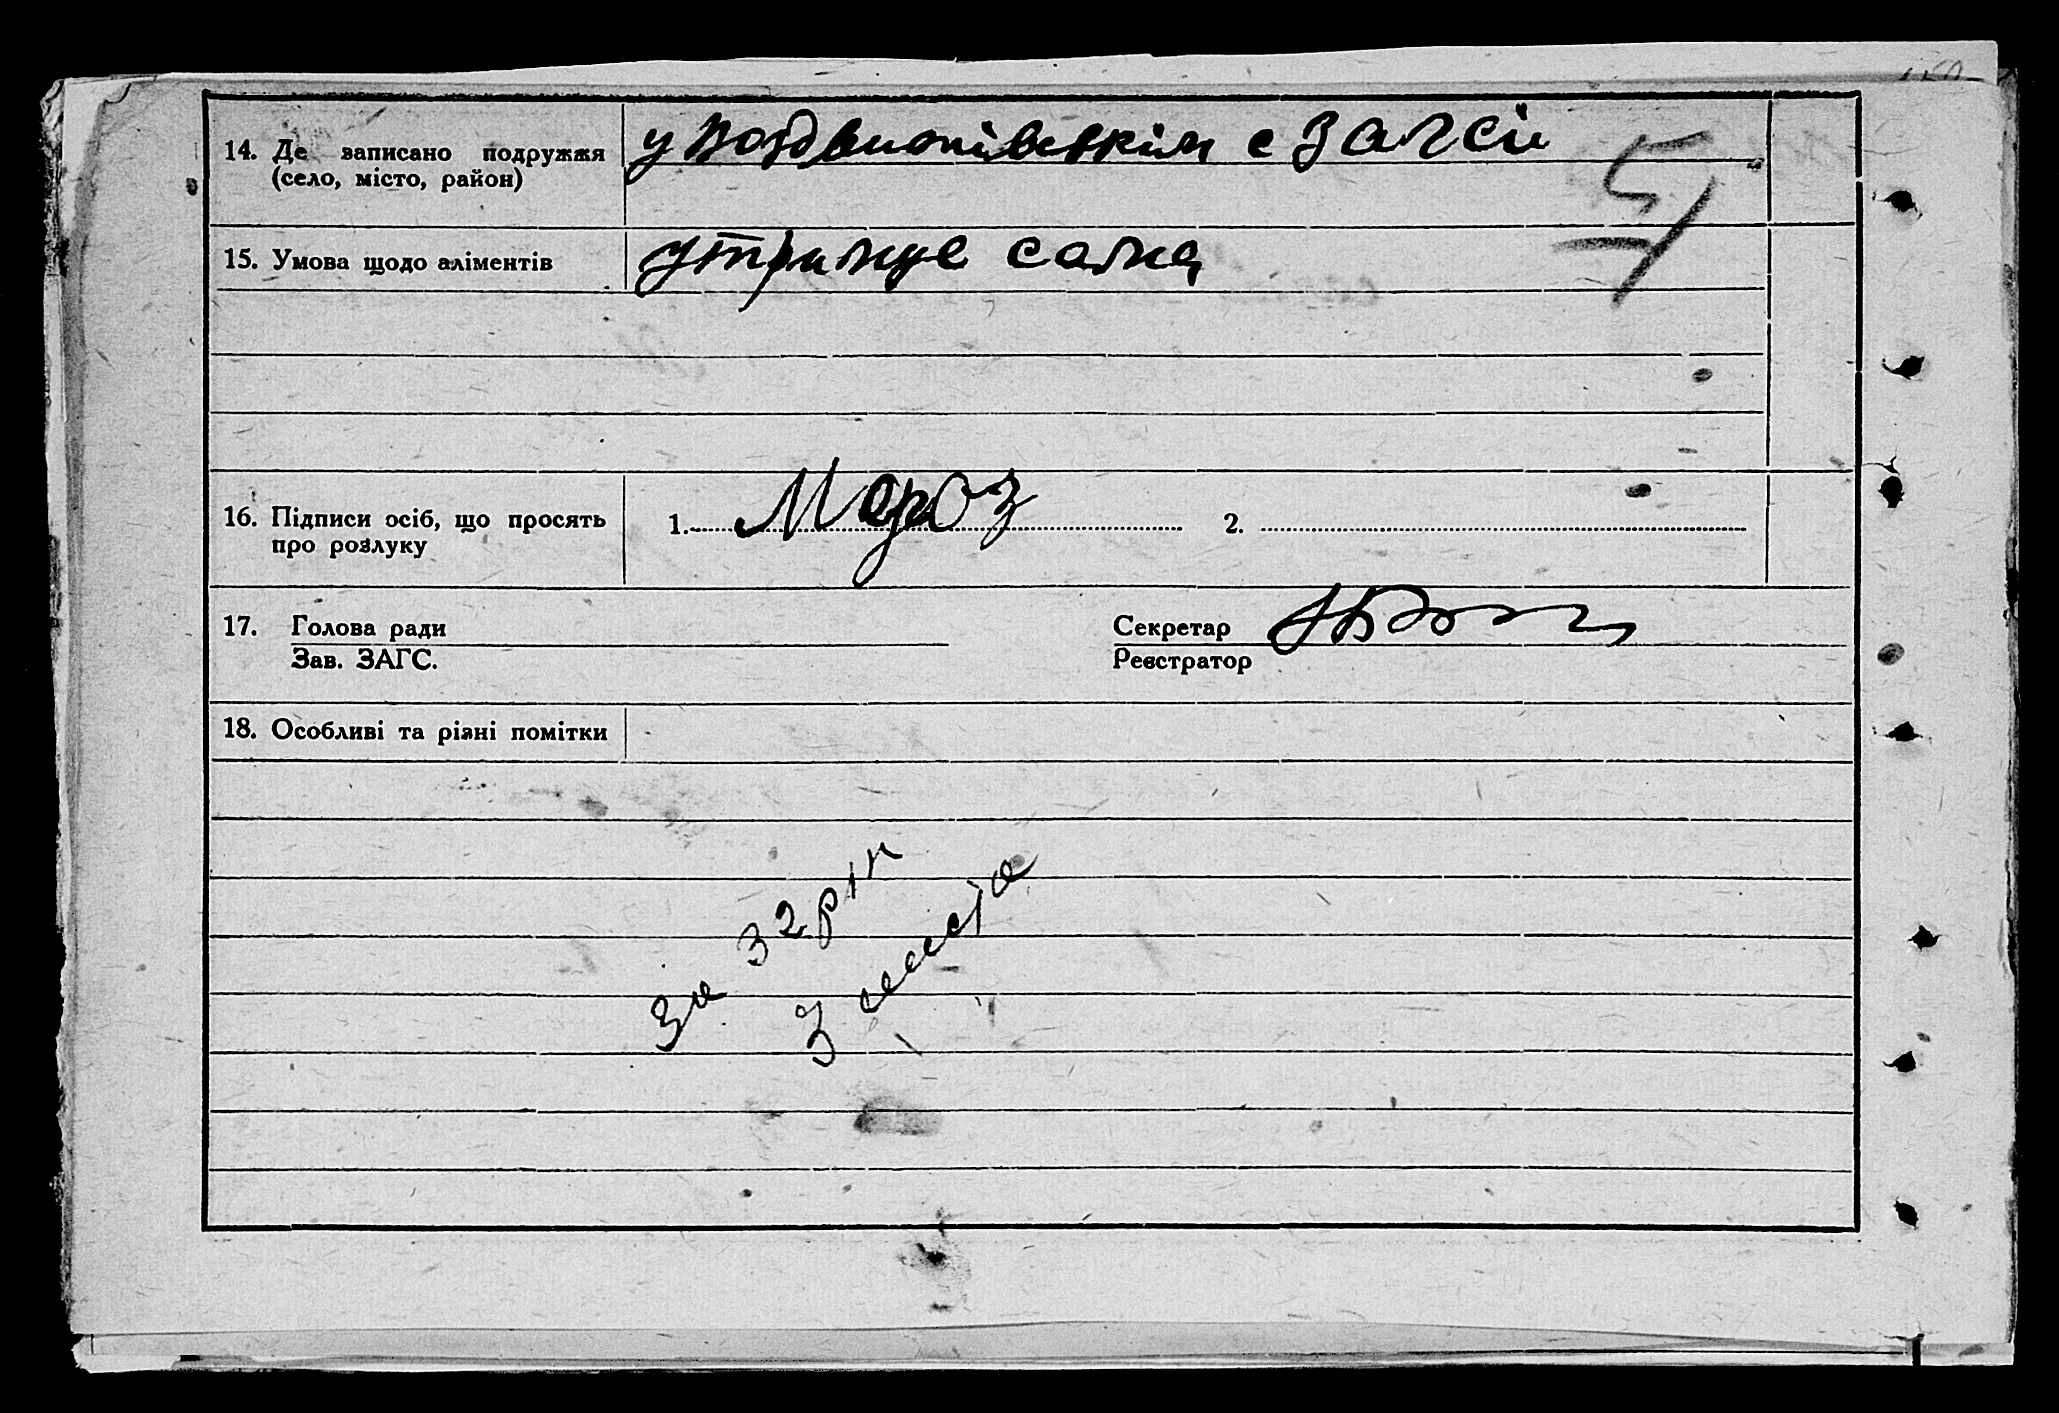 14. Де записано подружжя
(село, місто, район)
у Воздвижківськім с ЗАГСі
15. Умова щодо аліментів
утримує сама
16. Підписи осіб, що просять
про розлуку
1. Мороз 2.
17. Голова ради
Зав. ЗАГС.
Секретар
Реєстратор
18. Особливі та різні помітки
За 32 рік
3